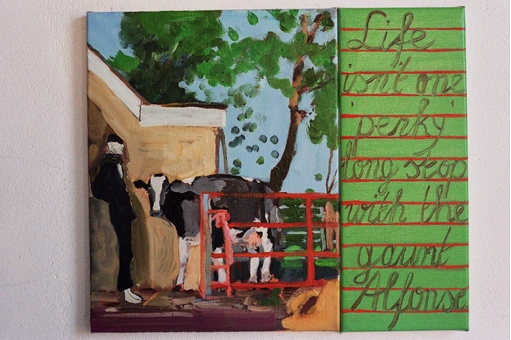 Life
isn't one
'perky'
long stop
with the
gaunt
Alfonse